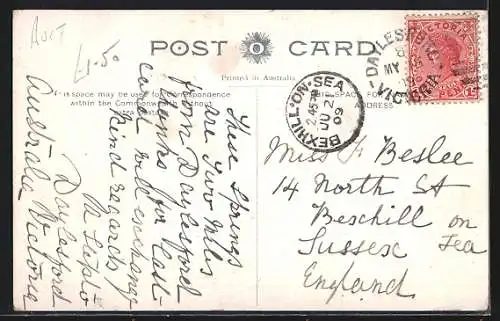 AUCT
£1.50
POST CARD
Printed in Australia
This space may be used for Correspondence
within the Commonwealth without
Extra
SPACE FOR
ADDRESS.
VICTORIA
DAYLESFORD
MY
VICTORIA
BEXHILL-ON-SEA
2.45 PM
JU 21
09
These Springs
are two Miles
from Daylesford
thanks for last
card will exchange
kind regards
Daylesford
Australia Victoria
Miss F Beslee
14 North St
Bexhill on
Sussex Sea
England